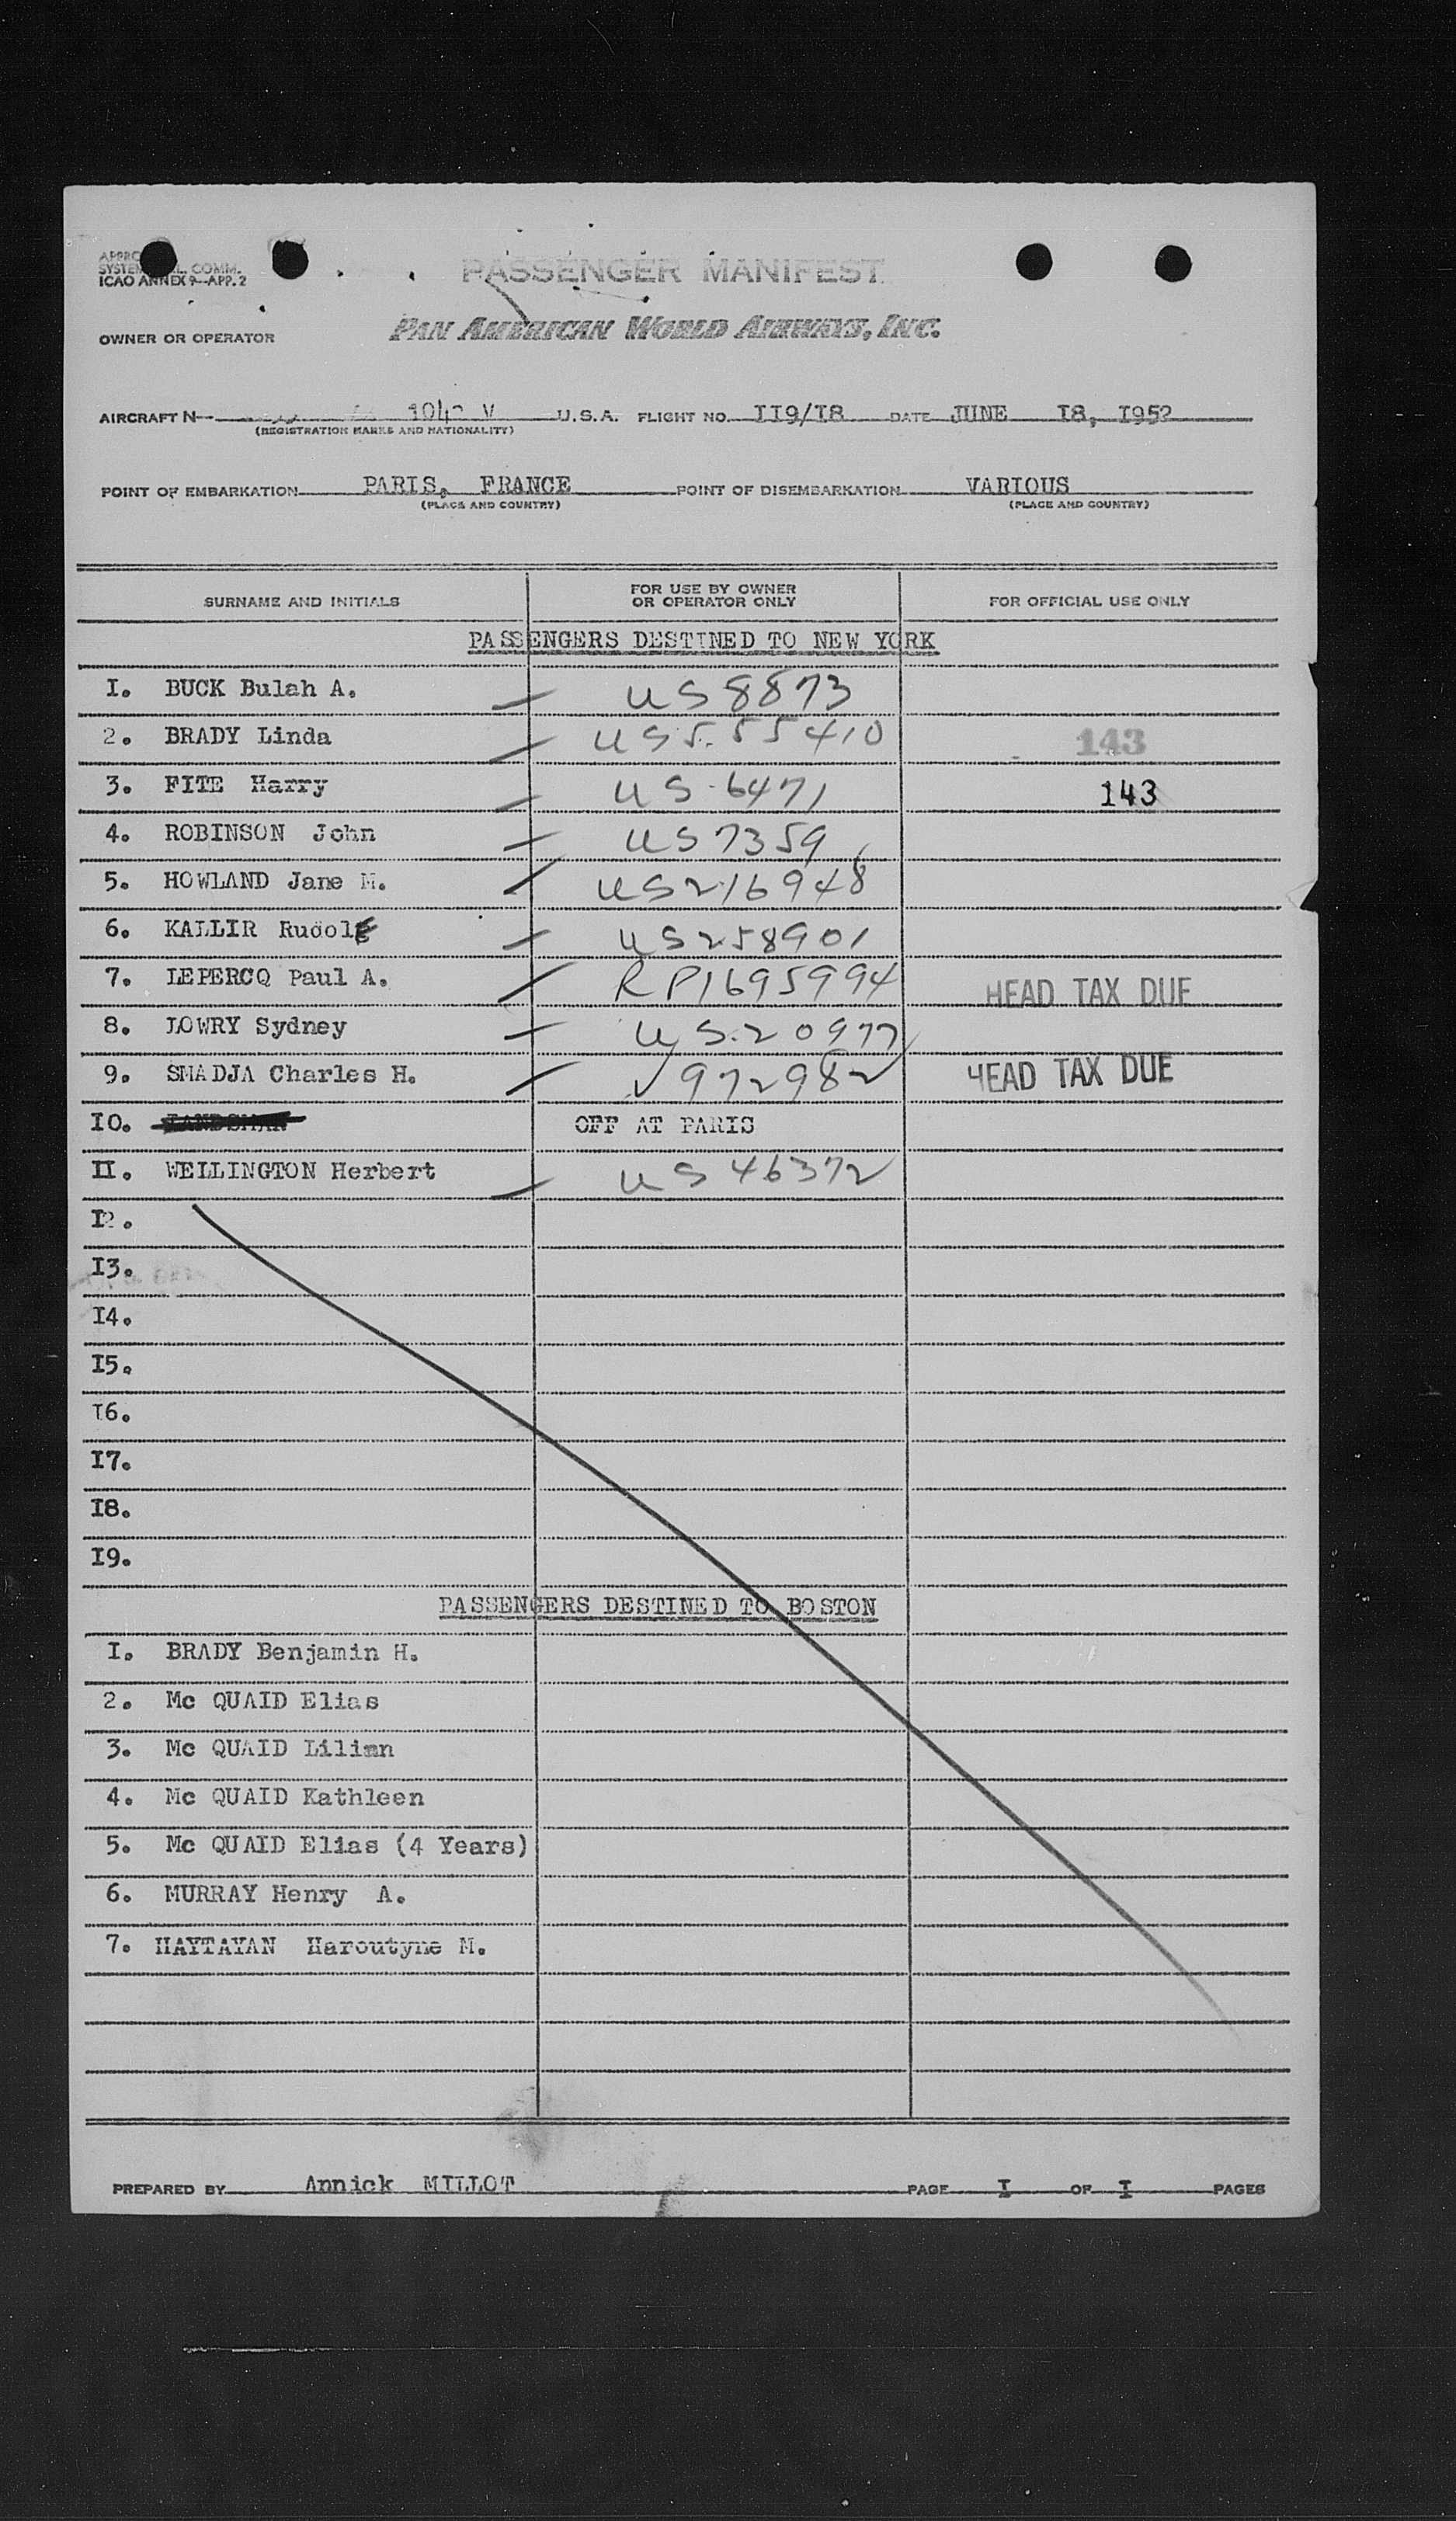 SYSTEM COMM.
ICAO ANNEX 9—APP. 2
PASSENGER MANIFEST
OWNER OR OPERATOR PAN AMERICAN WORLD AIRWAYS, INC.
AIRCRAFT N— V U.S.A. FLIGHT NO. II9/I8 DATE JUNE I8, I952
(REGISTRATION MARKS AND NATIONALITY)
POINT OF EMBARKATION PARIS, FRANCE POINT OF DISEMBARKATION VARIOUS
(PLACE AND COUNTRY) (PLACE AND COUNTRY)
SURNAME AND INITIALS FOR USE BY OWNER OR OPERATOR ONLY FOR OFFICIAL USE ONLY
PASSENGERS DESTINED TO NEW YORK
I. BUCK Bulah A. US 8873
2. BRADY Linda US 5.55410 143
3. FITE Harry US 6471 143
4. ROBINSON John US 7359
5. HOWLAND Jane M. US 216948
6. KALLIR Rudolf US 258901
7. LEPERCQ Paul A. RP1695994 HEAD TAX DUE
8. LOWRY Sydney US 20977
9. SMADJA Charles H. V972982 HEAD TAX DUE
I0. OFF AT PARIS
II. WELLINGTON Herbert US 46372
I2.
I3.
I4.
I5.
I6.
I7.
I8.
I9.
PASSENGERS DESTINED TO BOSTON
I. BRADY Benjamin H.
2. Mc QUAID Elias
3. Mc QUAID Lilian
4. Mc QUAID Kathleen
5. Mc QUAID Elias (4 Years)
6. MURRAY Henry A.
7. HAYTAYAN Haroutyne M.
PREPARED BY Annick MILLOT PAGE I OF I PAGES